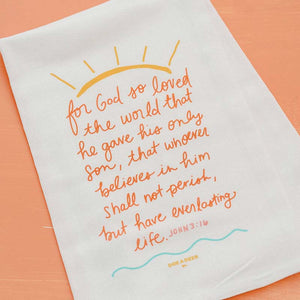 for God so loved
the world that
he gave his only
son, that whoever
believes in him
shall not perish,
but have everlasting
life. JOHN 3:16